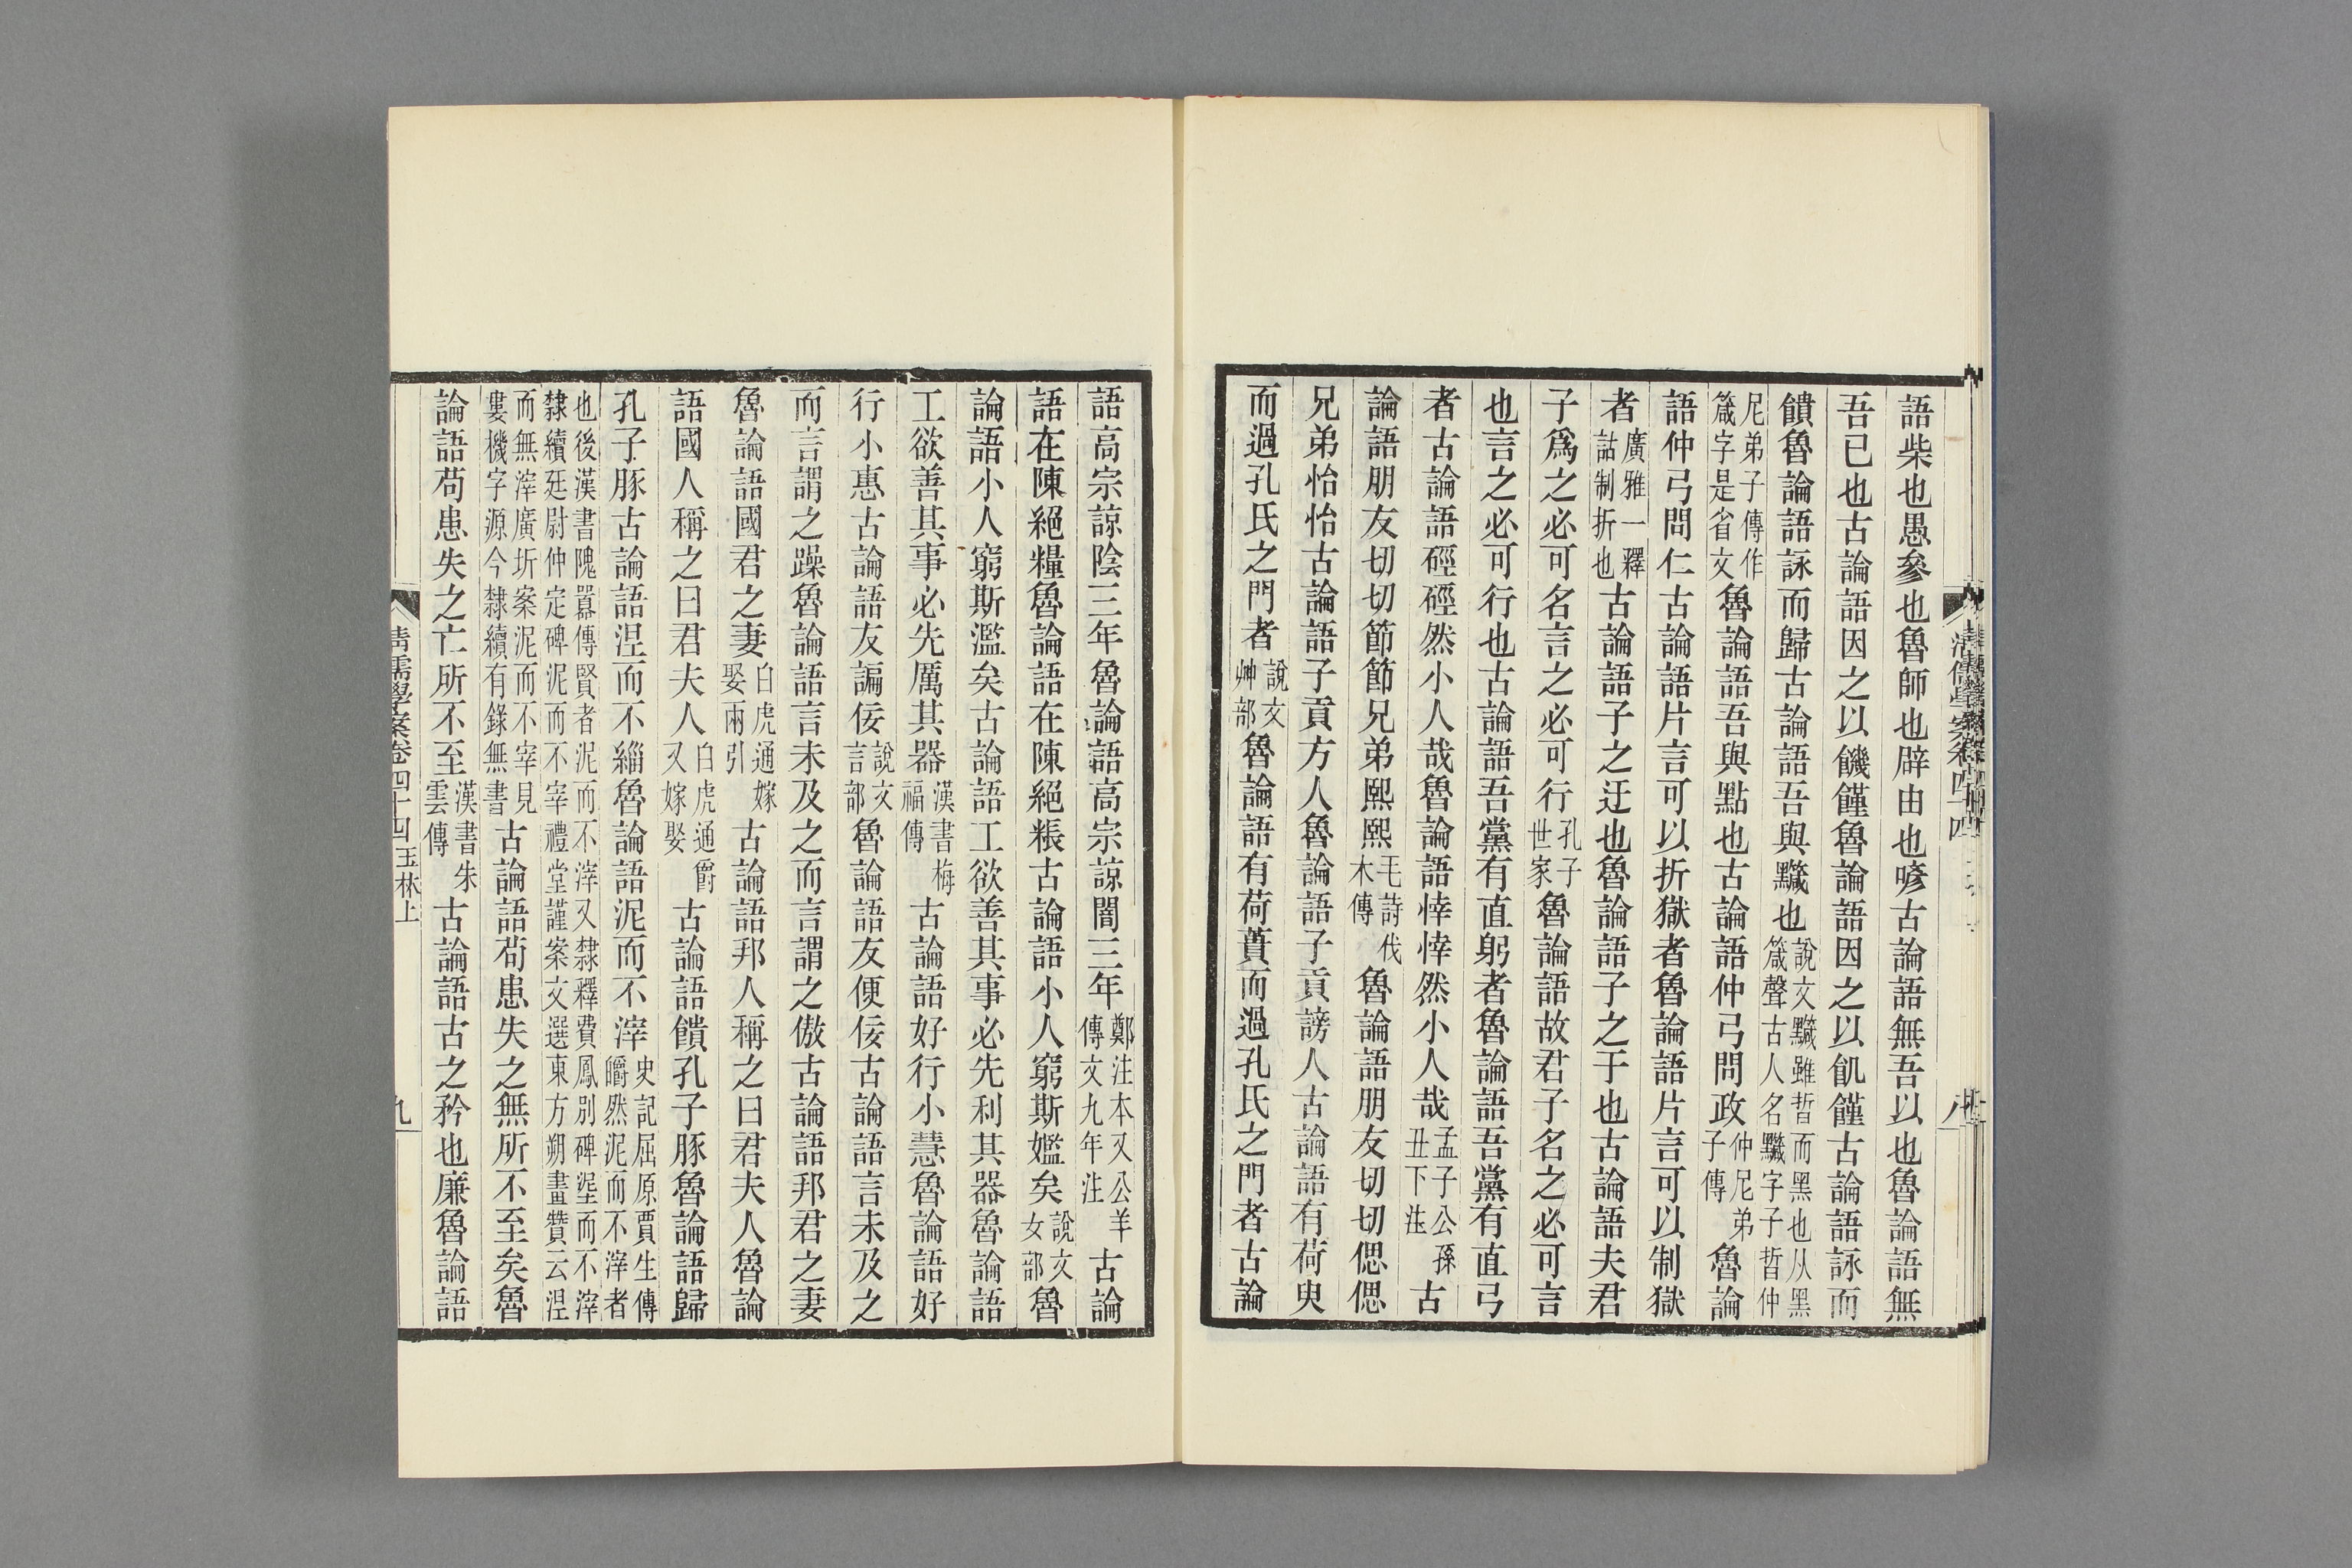 語柴也愚參也魯師也辟由也喭古論語無吾以也魯論語無
吾已也古論語因之以饑饉魯論語因之以飢饉古論語詠而
饋魯論語詠而歸古論語吾與黷也說文黷雖晳而黑也从黑箴聲古人名黷字子晳仲
尼弟子傳作箴字是省文魯論語吾與點也古論語仲弓問政仲尼弟子傳魯論
語仲弓問仁古論語片言可以折獄者魯論語片言可以制獄
者廣雅一釋詁制折也古論語子之迂也魯論語子之于也古論語夫君
子爲之必可名言之必可行孔子世家魯論語故君子名之必可言
也言之必可行也古論語吾黨有直躬者魯論語吾黨有直弓
者古論語硜硜然小人哉魯論語悻悻然小人哉孟子公孫丑下注古
論語朋友切切節節兄弟熙熙毛詩伐木傳魯論語朋友切切偲偲
兄弟怡怡古論語子貢方人魯論語子貢謗人古論語有荷臾
而過孔氏之門者說文艸部魯論語有荷蕢而過孔氏之門者古論
清儒學案卷四十四
八
語高宗諒陰三年魯論語高宗諒闇三年鄭注本又公羊傳文九年注古論
語在陳絕糧魯論語在陳絕粻古論語小人窮斯㜮矣說文女部魯
論語小人窮斯濫矣古論語工欲善其事必先利其器魯論語
工欲善其事必先厲其器漢書梅福傳古論語好行小慧魯論語好
行小惠古論語友諞佞說文言部魯論語友便佞古論語言未及之
而言謂之躁魯論語言未及之而言謂之傲古論語邦君之妻
魯論語國君之妻白虎通嫁娶兩引古論語邦人稱之曰君夫人魯論
語國人稱之曰君夫人白虎通爵又嫁娶古論語饋孔子豚魯論語歸
孔子豚古論語涅而不緇魯論語泥而不滓史記屈原賈生傳皭然泥而不滓者
也後漢書隗囂傳賢者泥而不滓又隸釋費鳳別碑埿而不滓隸續廷尉仲定碑泥而不宰禮堂謹案文選東方朔畫贊云涅
而無滓廣圻案泥而不宰見婁機字源今隸續有錄無書古論語苟患失之無所不至矣魯
論語苟患失之亡所不至漢書朱雲傳古論語古之矜也廉魯論語
清儒學案卷四十四 玉林上
九